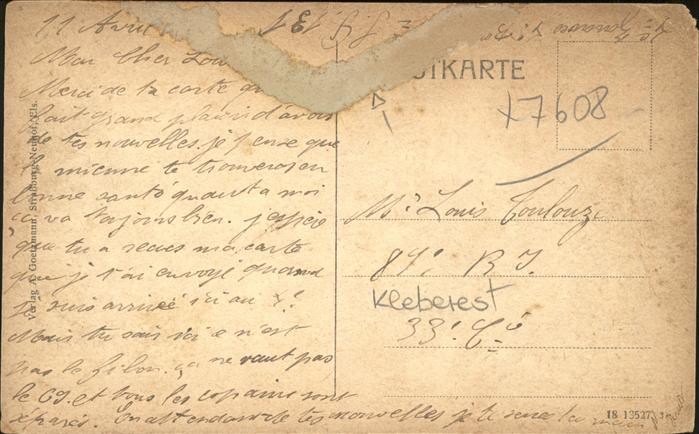 11 Avril
Mon Cher Lou
Merci de ta carte
fait grand plaisir d'avoir
de tes nouvelles je pense que
la mienne te trouvera en
bonne santé quant a moi
ça va toujours bien. j'espère
que tu a recus ma carte
que je t'ai envoyé quand
je suis arrivé ici au
Mais tu sais ici c n'est
pas le filon. ça ne vaut pas
le et tous les copains sont
séparés. En attendant de tes nouvelles je te serre la main
Verlag A. Goetzmann, Strassburg-Neuhof, Els.
STKARTE
+7608
Mr Louis Toulouze
87e R I.
Kleberest
33e Cie
18 13527